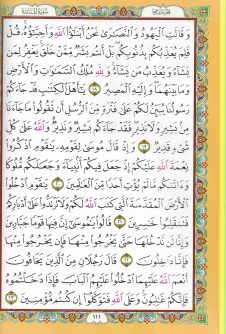 الجزء السادس سورة المائدة
وَقَالَتِ ٱلْيَهُودُ وَٱلنَّصَٰرَىٰ نَحْنُ أَبْنَٰٓؤُا۟ ٱللَّهِ وَأَحِبَّٰٓؤُهُۥ قُلْ
فَلِمَ يُعَذِّبُكُم بِذُنُوبِكُم بَلْ أَنتُم بَشَرٌ مِّمَّنْ خَلَقَ يَغْفِرُ لِمَن
يَشَآءُ وَيُعَذِّبُ مَن يَشَآءُ وَلِلَّهِ مُلْكُ ٱلسَّمَٰوَٰتِ وَٱلْأَرْضِ
وَمَا بَيْنَهُمَا وَإِلَيْهِ ٱلْمَصِيرُ ١٨ يَٰٓأَهْلَ ٱلْكِتَٰبِ قَدْ جَآءَكُمْ
رَسُولُنَا يُبَيِّنُ لَكُمْ عَلَىٰ فَتْرَةٍ مِّنَ ٱلرُّسُلِ أَن تَقُولُوا۟ مَا جَآءَنَا
مِنۢ بَشِيرٍ وَلَا نَذِيرٍ فَقَدْ جَآءَكُم بَشِيرٌ وَنَذِيرٌ وَٱللَّهُ عَلَىٰ
كُلِّ شَىْءٍ قَدِيرٌ ١٩ وَإِذْ قَالَ مُوسَىٰ لِقَوْمِهِۦ يَٰقَوْمِ ٱذْكُرُوا۟
نِعْمَةَ ٱللَّهِ عَلَيْكُمْ إِذْ جَعَلَ فِيكُمْ أَنۢبِيَآءَ وَجَعَلَكُم مُّلُوكًا
وَءَاتَىٰكُم مَّا لَمْ يُؤْتِ أَحَدًا مِّنَ ٱلْعَٰلَمِينَ ٢٠ يَٰقَوْمِ ٱدْخُلُوا۟
ٱلْأَرْضَ ٱلْمُقَدَّسَةَ ٱلَّتِى كَتَبَ ٱللَّهُ لَكُمْ وَلَا تَرْتَدُّوا۟ عَلَىٰٓ أَدْبَارِكُمْ
فَتَنقَلِبُوا۟ خَٰسِرِينَ ٢١ قَالُوا۟ يَٰمُوسَىٰٓ إِنَّ فِيهَا قَوْمًا جَبَّارِينَ
وَإِنَّا لَن نَّدْخُلَهَا حَتَّىٰ يَخْرُجُوا۟ مِنْهَا فَإِن يَخْرُجُوا۟ مِنْهَا
فَإِنَّا دَٰخِلُونَ ٢٢ قَالَ رَجُلَانِ مِنَ ٱلَّذِينَ يَخَافُونَ
أَنْعَمَ ٱللَّهُ عَلَيْهِمَا ٱدْخُلُوا۟ عَلَيْهِمُ ٱلْبَابَ فَإِذَا دَخَلْتُمُوهُ
فَإِنَّكُمْ غَٰلِبُونَ وَعَلَى ٱللَّهِ فَتَوَكَّلُوٓا۟ إِن كُنتُم مُّؤْمِنِينَ ٢٣
١١١